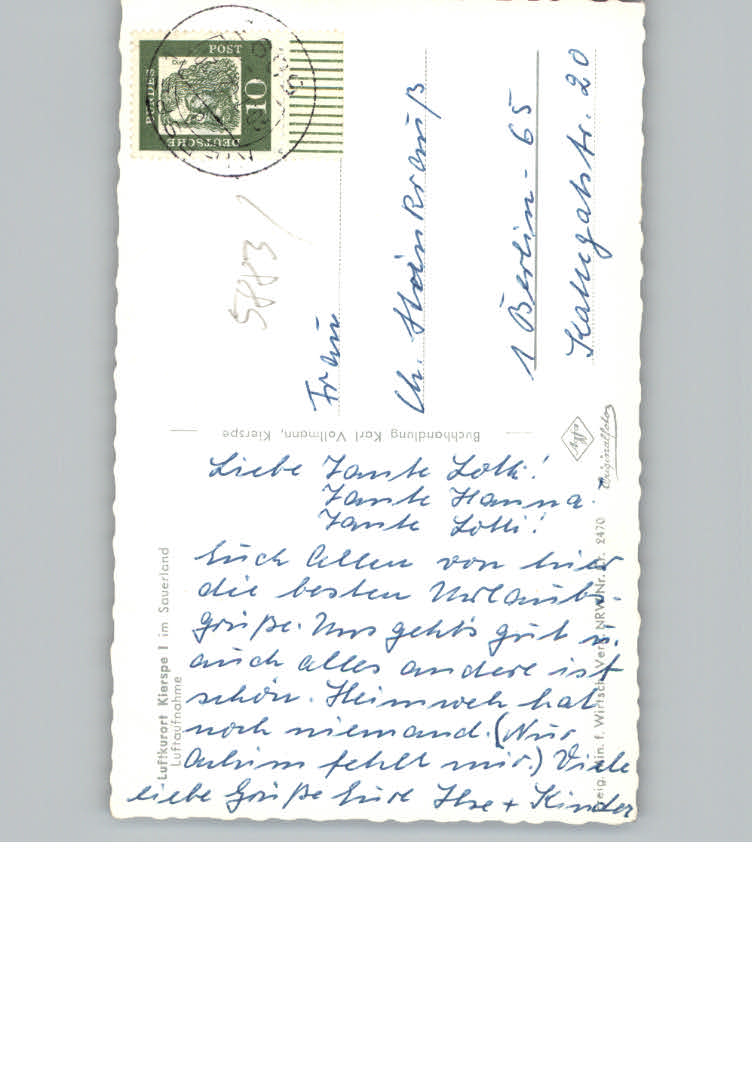 Liebe Tante Lotti!
Tante Hanna!
Tante Lotti!
Euch Allen von hier
die besten Urlaubs-
grüße. Uns geht's gut u.
auch alles andere ist
schön. Heimweh hat
noch niemand. (Nur
Achim fehlt mir.) Viele
liebe Grüße Eure Ilse + Kinder
Frau
Ch. Steinkrauß
1 Berlin - 65
20
5883
DEUTSCHE
BUNDES
POST
10
Buchhandlung Karl Vollmann, Kierspe
Agfa
Originalfoto
Luftkurort Kierspe I im Sauerland
Luftaufnahme
Min. f. Wirtsch. Verk. NRW Nr. 2470